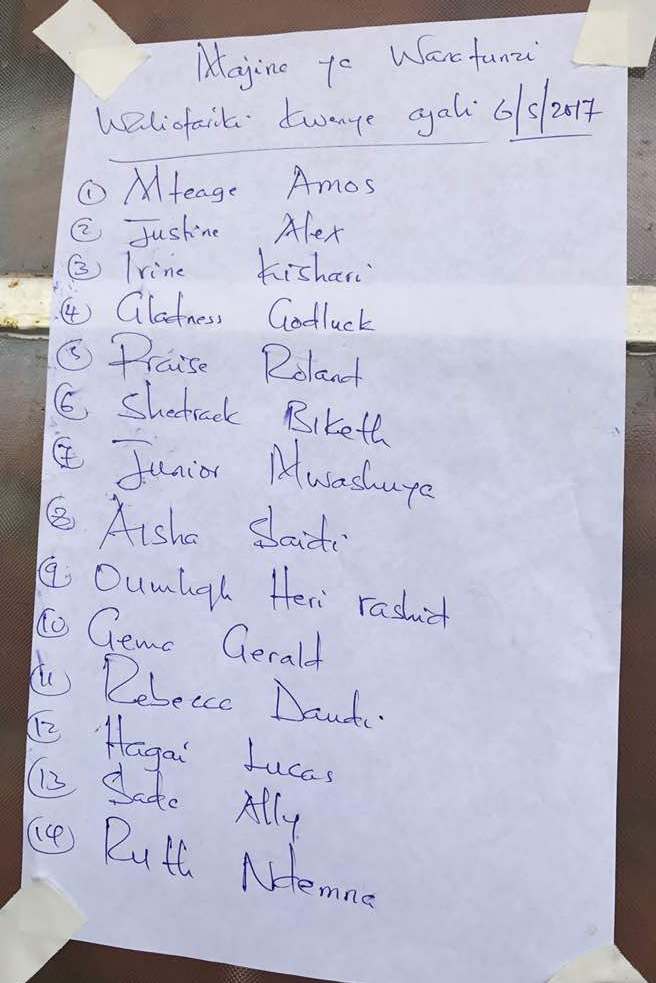 Majina ya Wanafunzi
Waliofariki kwenye ajali 6/5/2017
① Mteage Amos
② Justine Alex
③ Irine Kishari
④ Gladness Godluck
⑤ Praise Roland
⑥ Shedrack Biketh
⑦ Junior Mwashuya
⑧ Aisha Saidi
⑨ Oumliqh Heri rashid
⑩ Gema Gerald
⑪ Rebecca Daudi
⑫ Hagai Lucas
⑬ Sada Ally
⑭ Ruth Ndemna